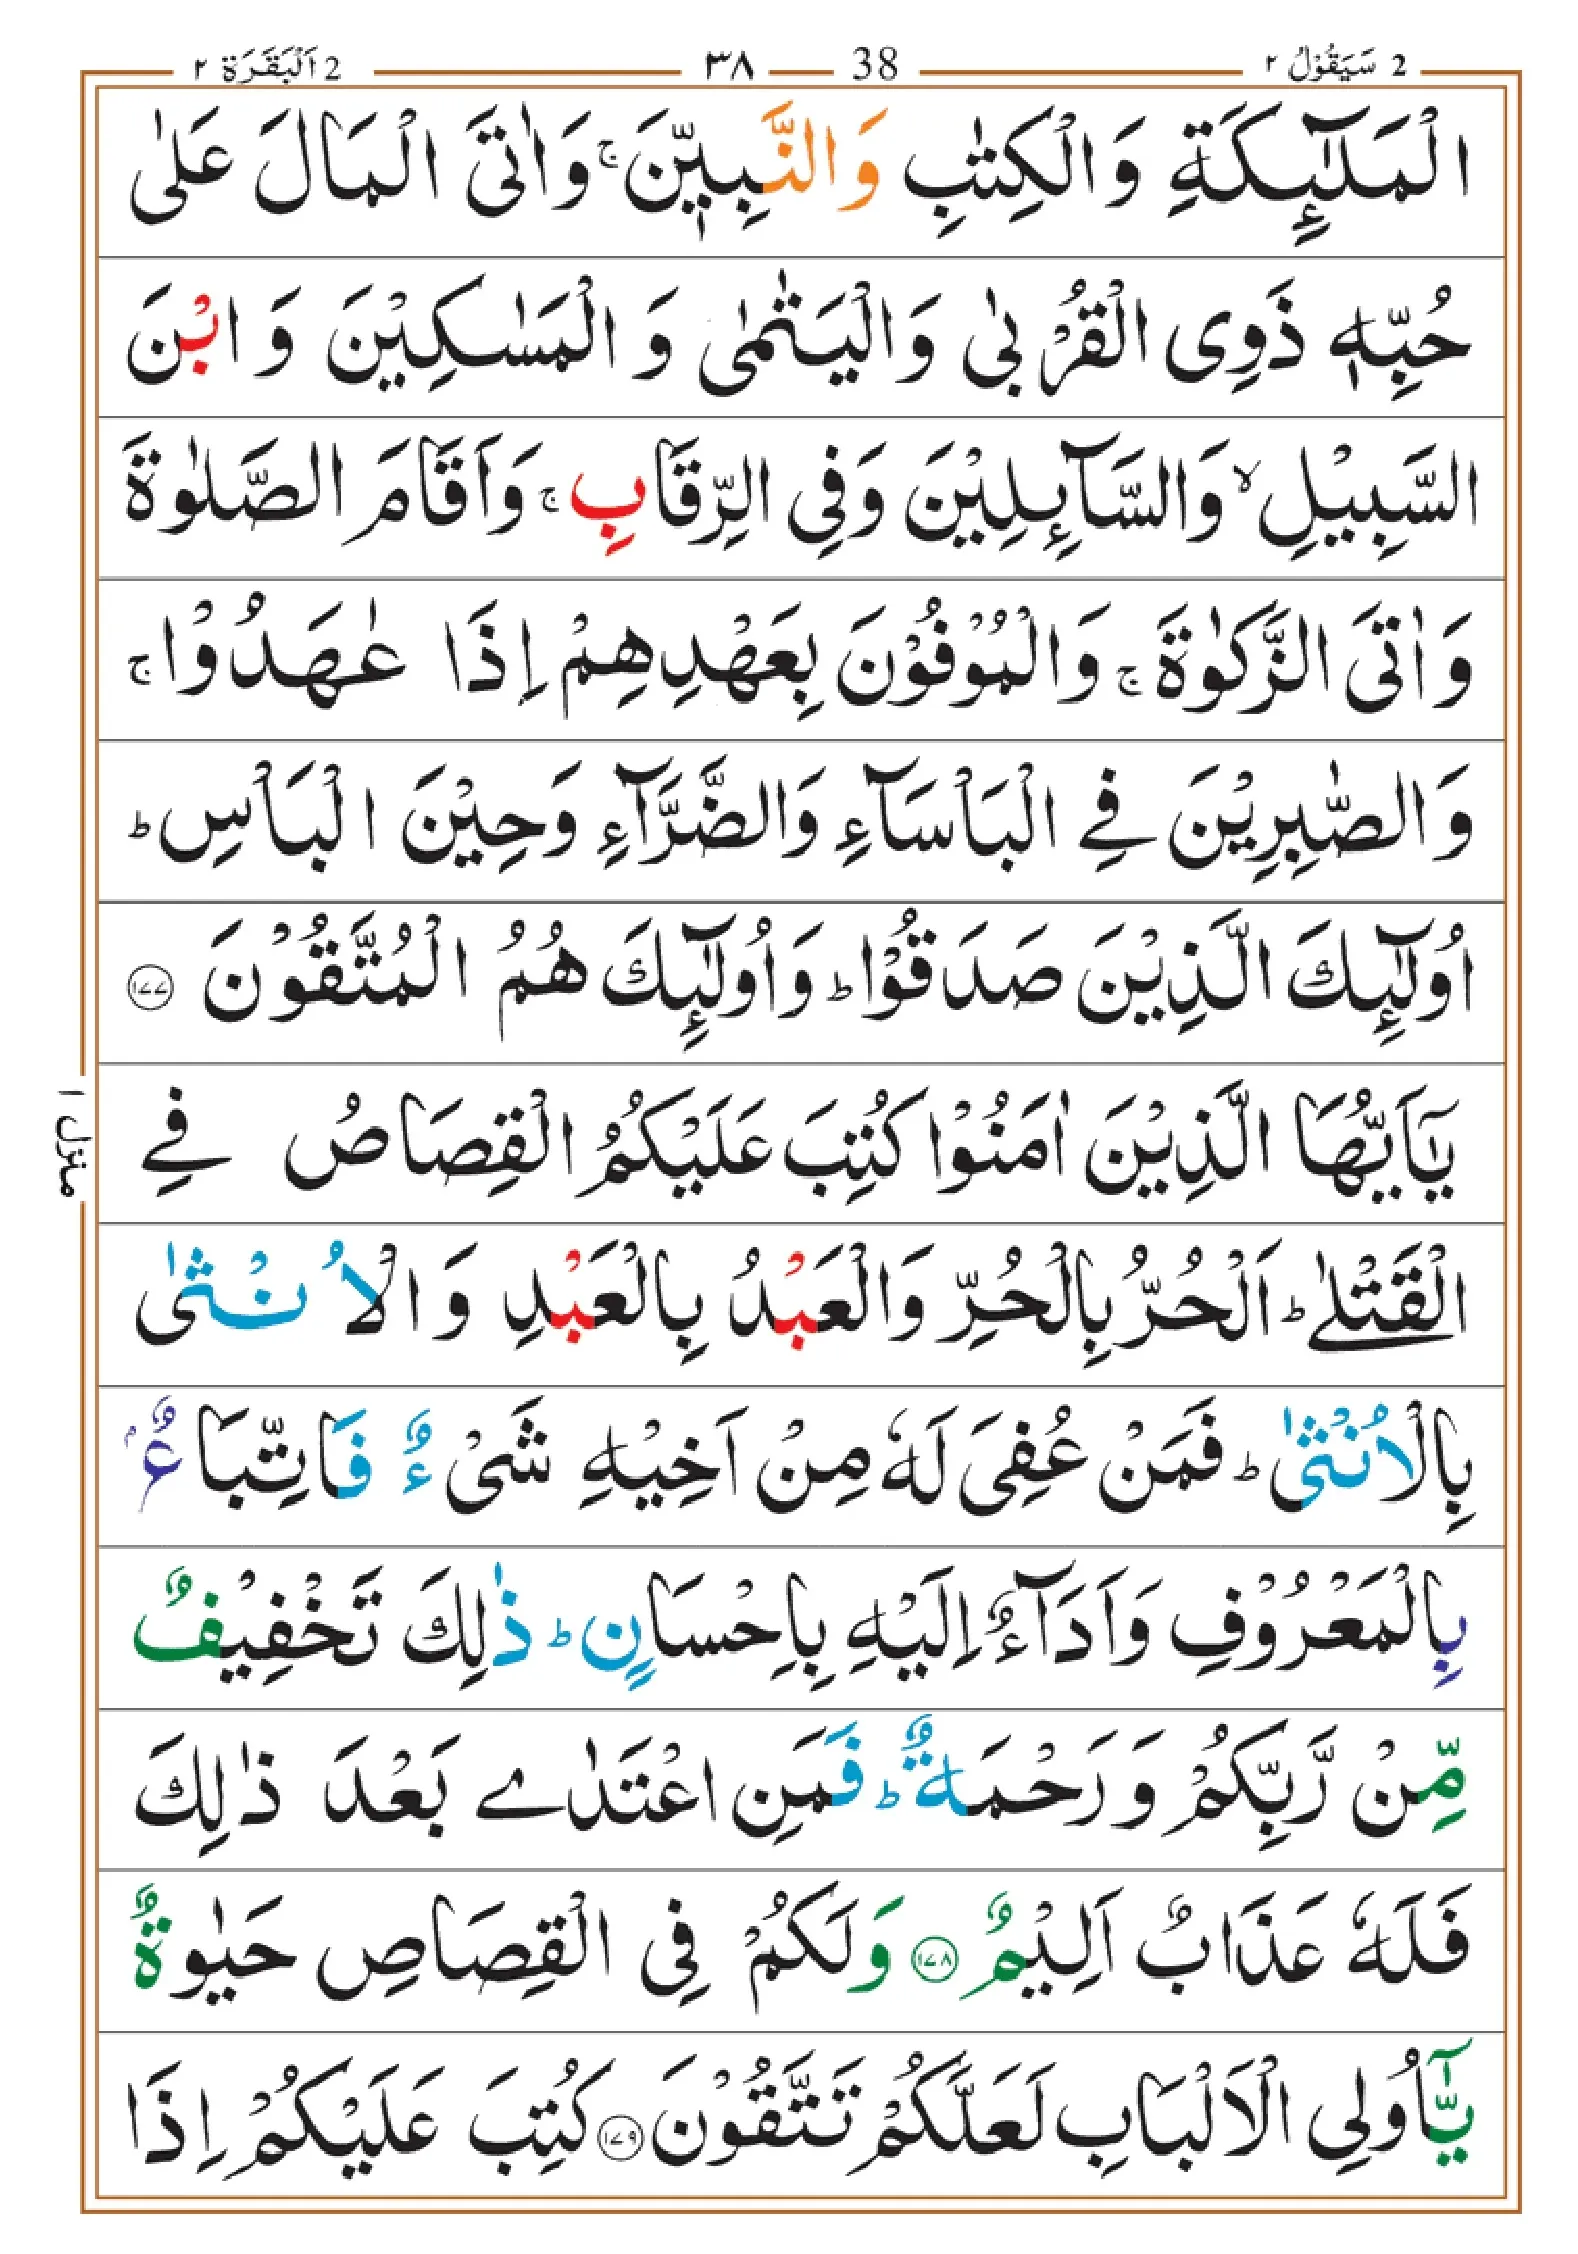 2 سَيَقُوْلُ ٢
38 ٣٨
2 اَلْبَقَرَة ٢
الْمَلٰٓئِكَةِ وَالْكِتٰبِ وَالنَّبِيّٖنَ ۚ وَاٰتَى الْمَالَ عَلٰى
حُبِّهٖ ذَوِى الْقُرْبٰى وَالْيَتٰمٰى وَالْمَسٰكِيْنَ وَابْنَ
السَّبِيْلِ ۙ وَالسَّآئِلِيْنَ وَفِى الرِّقَابِ ۚ وَاَقَامَ الصَّلٰوةَ
وَاٰتَى الزَّكٰوةَ ۚ وَالْمُوْفُوْنَ بِعَهْدِهِمْ اِذَا عٰهَدُوْا ۚ
وَالصّٰبِرِيْنَ فِے الْبَاْسَآءِ وَالضَّرَّآءِ وَحِيْنَ الْبَاْسِ ؕ
اُولٰٓئِكَ الَّذِيْنَ صَدَقُوْا ؕ وَاُولٰٓئِكَ هُمُ الْمُتَّقُوْنَ ١٧٧
يٰٓاَيُّهَا الَّذِيْنَ اٰمَنُوْا كُتِبَ عَلَيْكُمُ الْقِصَاصُ فِے
الْقَتْلٰے ؕ اَلْحُرُّ بِالْحُرِّ وَالْعَبْدُ بِالْعَبْدِ وَالْاُنْثٰى
بِالْاُنْثٰى ؕ فَمَنْ عُفِىَ لَهٗ مِنْ اَخِيْهِ شَىْءٌ فَاتِّبَاعٌۢ
بِالْمَعْرُوْفِ وَاَدَآءٌ اِلَيْهِ بِاِحْسَانٍ ؕ ذٰلِكَ تَخْفِيْفٌ
مِّنْ رَّبِّكُمْ وَرَحْمَةٌ ؕ فَمَنِ اعْتَدٰے بَعْدَ ذٰلِكَ
فَلَهٗ عَذَابٌ اَلِيْمٌ ١٧٨ وَلَكُمْ فِى الْقِصَاصِ حَيٰوةٌ
يّٰٓاُولِى الْاَلْبَابِ لَعَلَّكُمْ تَتَّقُوْنَ ١٧٩ كُتِبَ عَلَيْكُمْ اِذَا
منزل ١